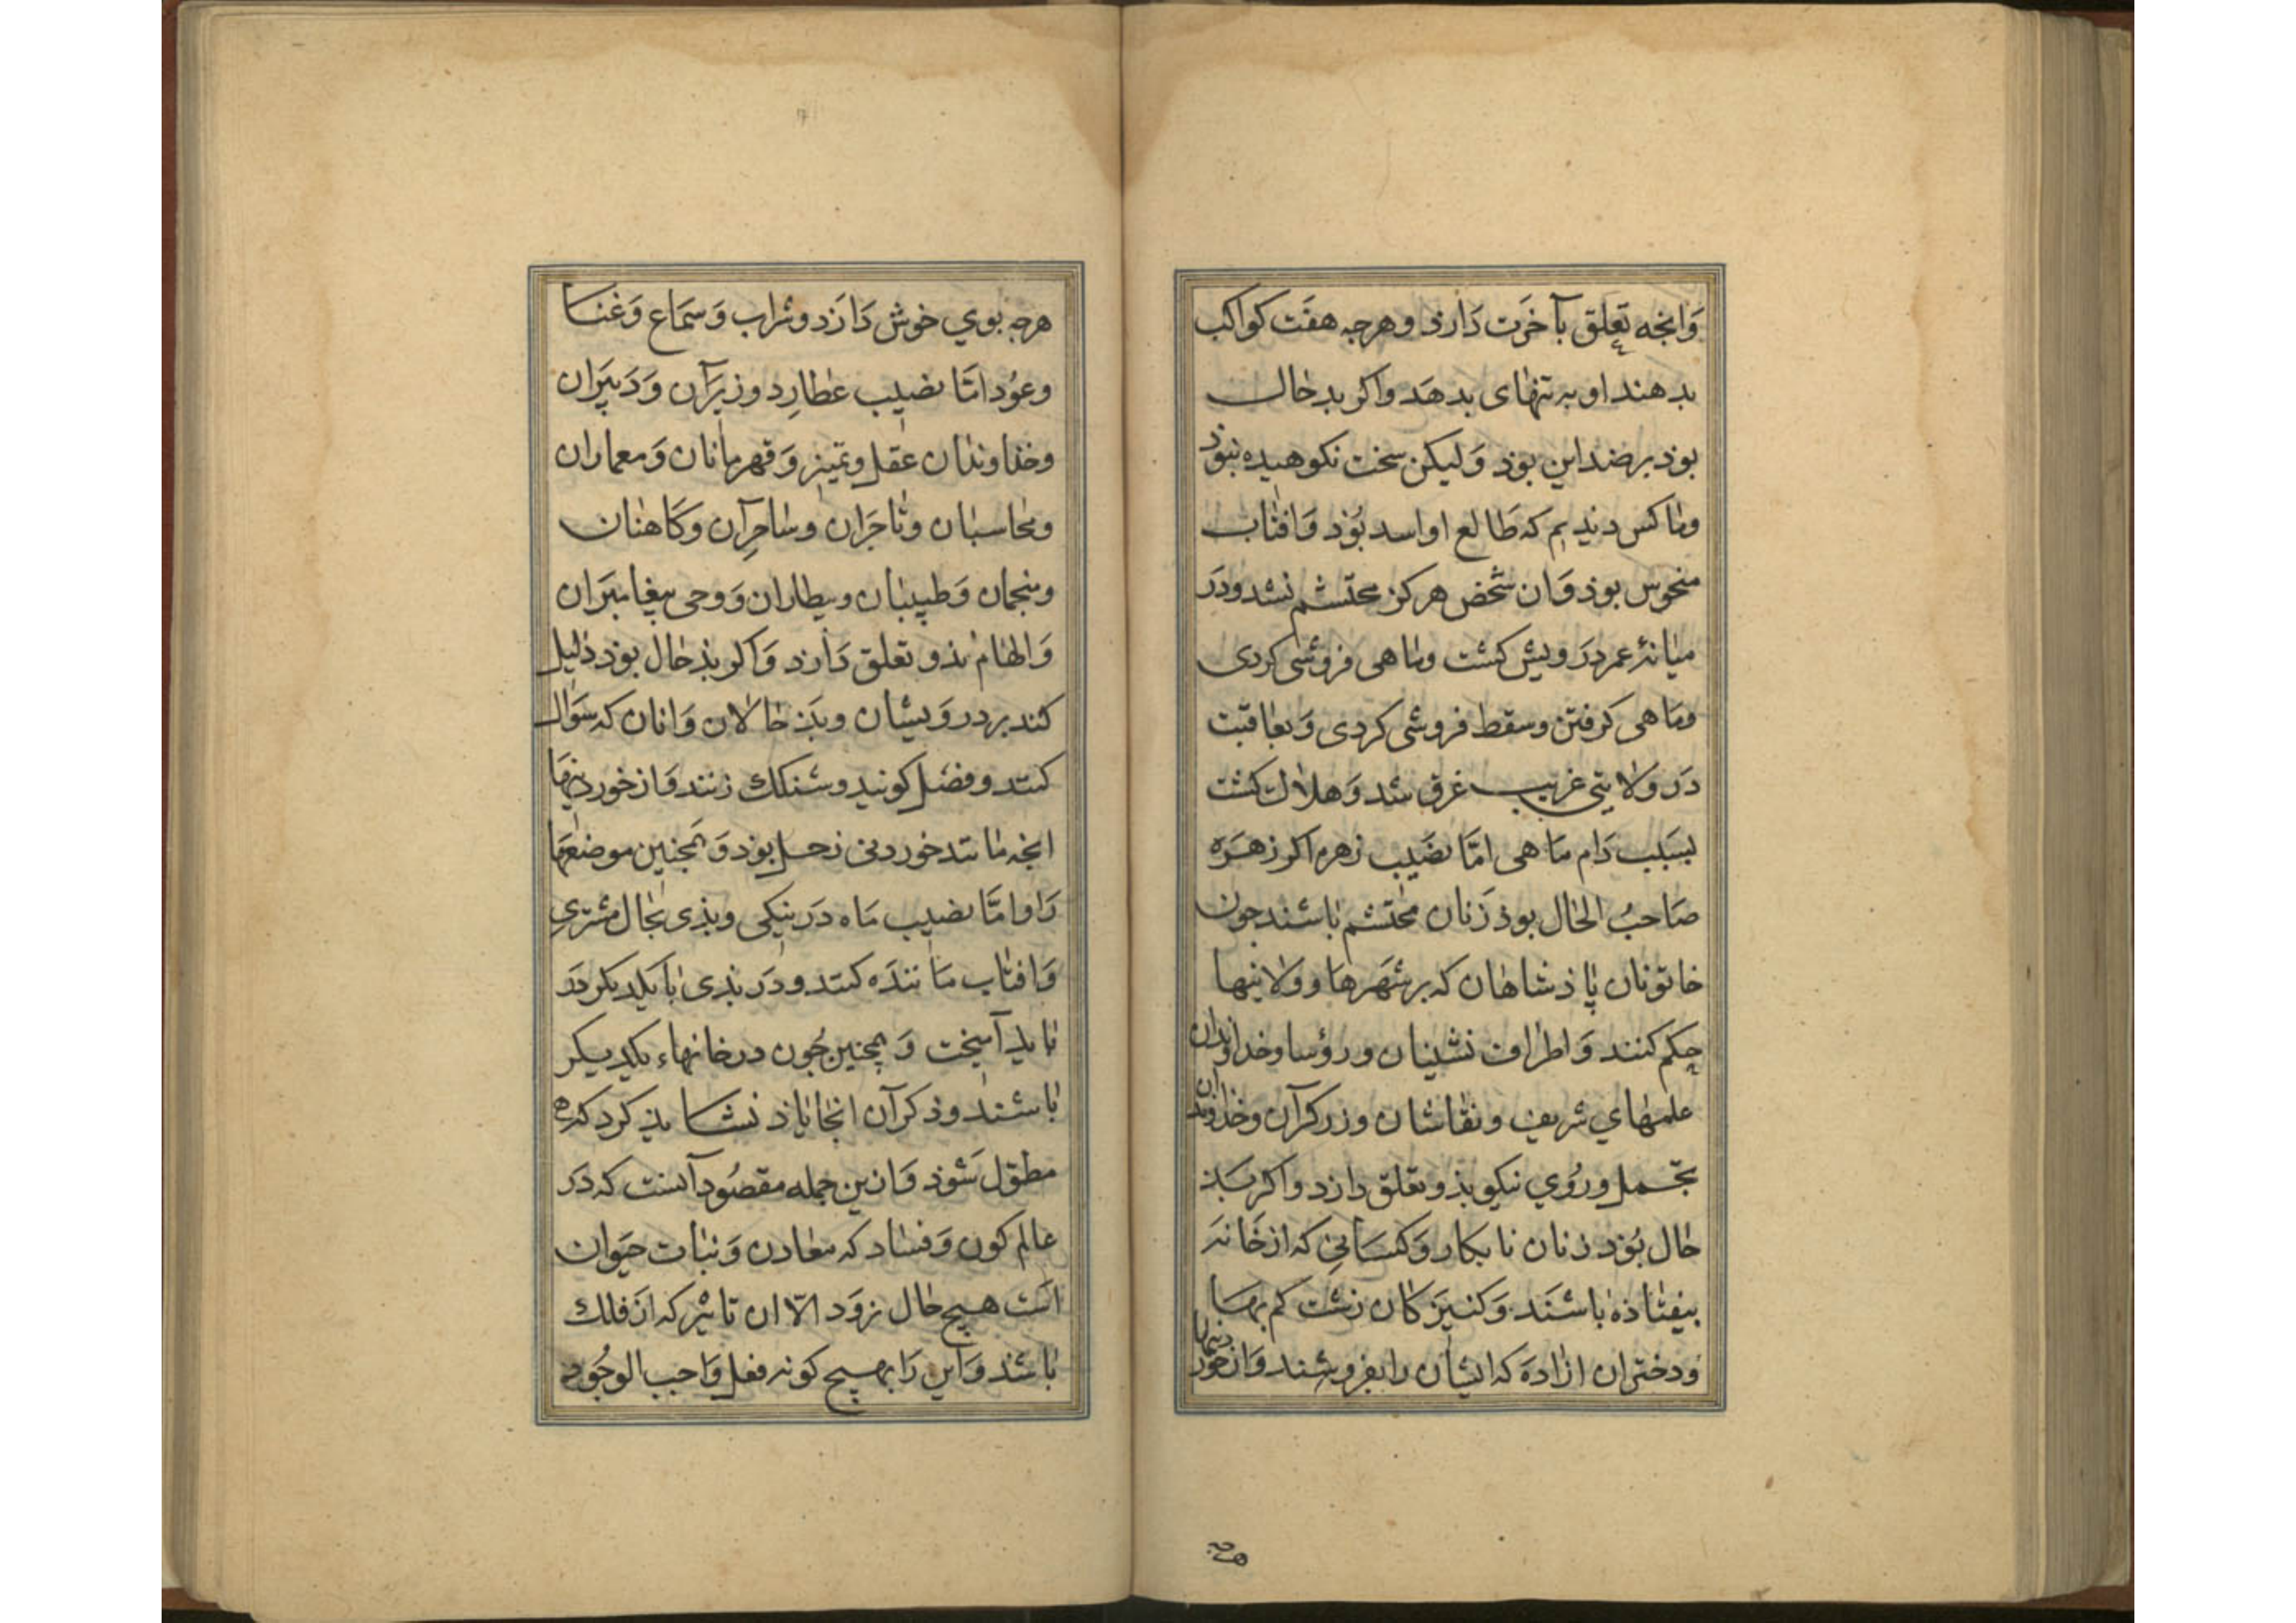 وَانجه تعلق بآخرَت دَارذ وهرجه هفت كواكب
بدهند او به تنهای بدهَد واكر بدحال
بوذ برضد این بوذ وَلیكن سخت نكوهیده نبوذ
وما كس دیدیم كه طَالع او اسد بوُذ وَافتاب
منحوس بوذ وَان شخص هركز محتشم نشد ودَر
میانۀ عمر درَویش كشت وماهی فروشی كردی
ومَاهی كرفتن وسقط فروشی كردی وَبعاقبت
دَر ولایتی غریب غرق شد وَهلاك كشت
بسَبب دَام مَاهی امّا نصَیب زهره اكر زهَرَه
صَاحبُ الحال بوذ زَنان محتشم باشند جون
خاتونان پاذشاهان كه بر شهَرهَا وولایتها
حكم كنند وَاطراف نشینان ورؤسا وخداوندان
علمهاي شریف ونقاشان وزركرآن وخداوندان
تجمل ورُوي نیكو بذو تعلق دارد واكر بَذ
حال بُوَذ زنان نابكار وَكسَانیِ كه از خَانَه
بیفتاذه باشنَد وَكنیزَكان زشت كم بها
ودختران ازادَه كه ایشان را بفروشند وَاز خوردنیها
هرجه بوي خوش دَارَد وشراب وَسمَاع وَغنا
وعوُد امّا نصیب عطارِد وزیرَآن وَدَبیرَان
وخذاوندان عقل وتمییز وَقهرمانان وَمعماران
ومحاسبان وتاجرَان وساحرِآن وكَاهنان
ومنجمان وَطبیبان وبیطاران وَوحی پیغامبرَان
وَالهام بذو تعلق دَارد وَاكر بذحال بوذ دَلیل
كند بر درَویشان وبذَحالان وَانان كه سَوال
كنند وفضل كویند وشنكك زنند وَاز خوردنیها
انجه مانند خوردنی زحل بوذ وَهمجنین موضعهَا
رَا وامّا نصیب مَاه دَر نیكی وبذی بحال مشتری
وَافتاب مَاننده كنند ودَر بذی با یكدیكر دَر
باید آمیخت وَهمجنین جُون در خانهاء یكدیكر
باشند وذكرآن انجا یاذ نشایذ كرد كه
مطول شَوذ وَازین جمله مقصُود آنست كه دَر
عالم كون وَفسَاد كه معادن وَنبات حیَوان
است هیج حال نروَد الاّ ان تاثیر كه از فلك
باشند وَاین رَا بهیج كونه فعل وَاجب الوجُود